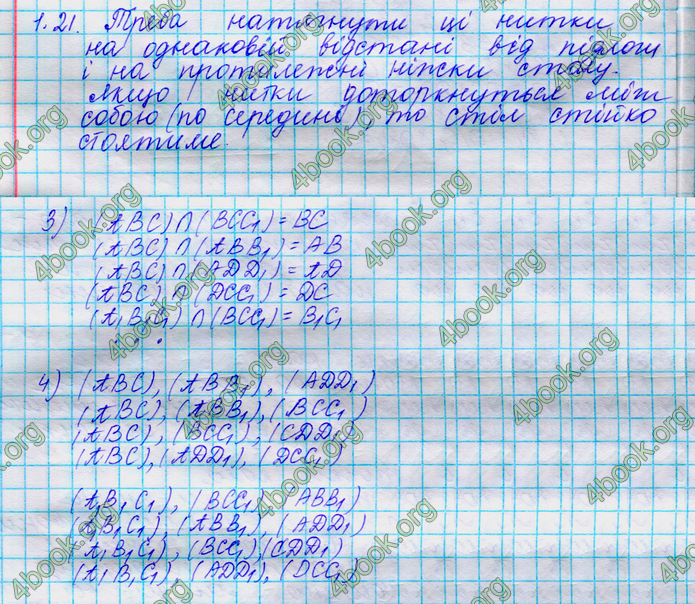 1.21. Треба натягнути ці нитки
на однаковій відстані від підлоги
і на протилежні ніжки столу.
Якщо нитки доторкнуться між
собою (по середині), то стіл стійко
стоятиме.
3) (ABC) ∩ (BCC₁) = BC
(ABC) ∩ (ABB₁) = AB
(ABC) ∩ (ADD₁) = AD
(ABC) ∩ (DCC₁) = DC
(A₁B₁C₁) ∩ (BCC₁) = B₁C₁
. . .
4) (ABC), (ABB₁), (ADD₁)
(ABC), (ABB₁), (BCC₁)
(ABC), (BCC₁), (CDD₁)
(ABC), (ADD₁), (DCC₁)
(A₁B₁C₁), (BCC₁), (ABB₁)
(A₁B₁C₁), (ABB₁), (ADD₁)
(A₁B₁C₁), (BCC₁), (CDD₁)
(A₁B₁C₁), (ADD₁), (DCC₁)
4book.org